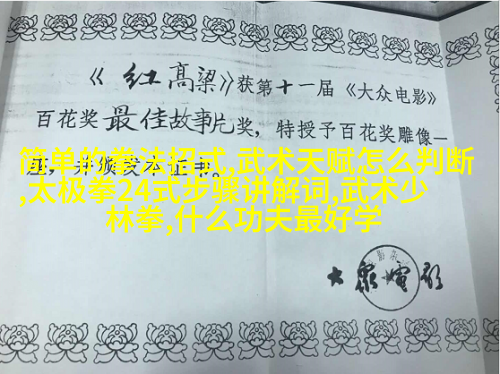 《红高粱》获第十一届《大众电影》
百花奖最佳故事片奖，特授予百花奖雕像一
简单的拳法招式,武术天赋怎么判断
,太极拳24式步骤讲解词,武术少
林拳,什么功夫最好学
大众电影